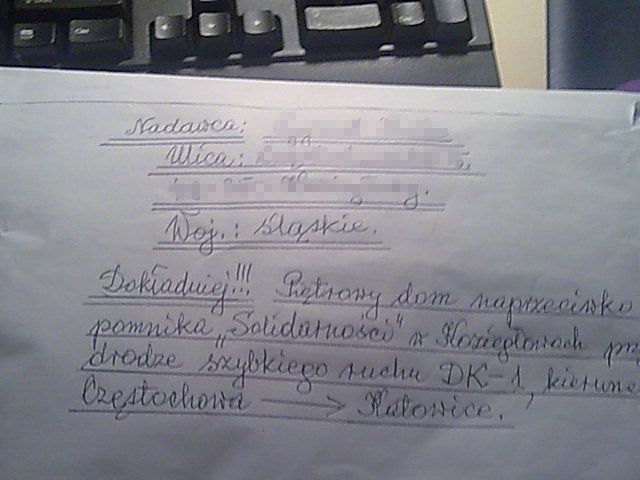 Nadawca:
Ulica:
Woj.: śląskie.
Dokładniej!!! Piętrowy dom naprzeciwko
pomnika „Solidarności" w Koziegłowach prz
drodze szybkiego ruchu DK-1, kierune
Częstochowa → Katowice.